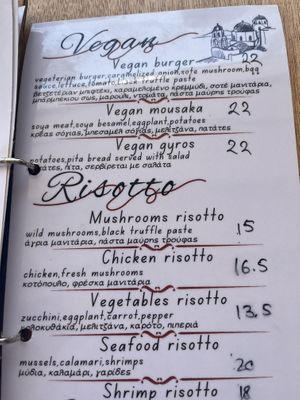 Vegan
Vegan burger 22
vegeterian burger,caramelized onion,sote mushroom,bqq
sauce,lettuce,tomato,black truffle paste
βετζετέριαν μπιφτέκι, καραμελομένο κρεμμύδι, σοτέ μανιτάρια,
μπάρμπεκιου σως, μαρούλι, ντομάτα, πάστα μαύρης τρούφας
Vegan mousaka 22
soya meat,soya besamel,eggplant,potatoes
κρέας σόγιας,μπεσαμελ σόγιας, μελιτζάνα, πατάτες
Vegan gyros 22
potatoes,pita bread served with salad
πατάτες, πίτα, σερβίρεται με σαλάτα
Risotto
Mushrooms risotto 15
wild mushrooms,black truffle paste
άγρια μανιτάρια, πάστα μαύρης τρούφας
Chicken risotto 16.5
chicken,fresh mushrooms
κοτόπουλο, φρέσκα μανιτάρια
Vegetables risotto 13.5
zucchini,eggplant,carrot,pepper
κολοκυθάκια, μελιτζάνα, καρότο, πιπεριά
Seafood risotto 20
mussels,calamari,shrimps
μύδια, καλαμάρι, γαρίδες
Shrimp risotto 18